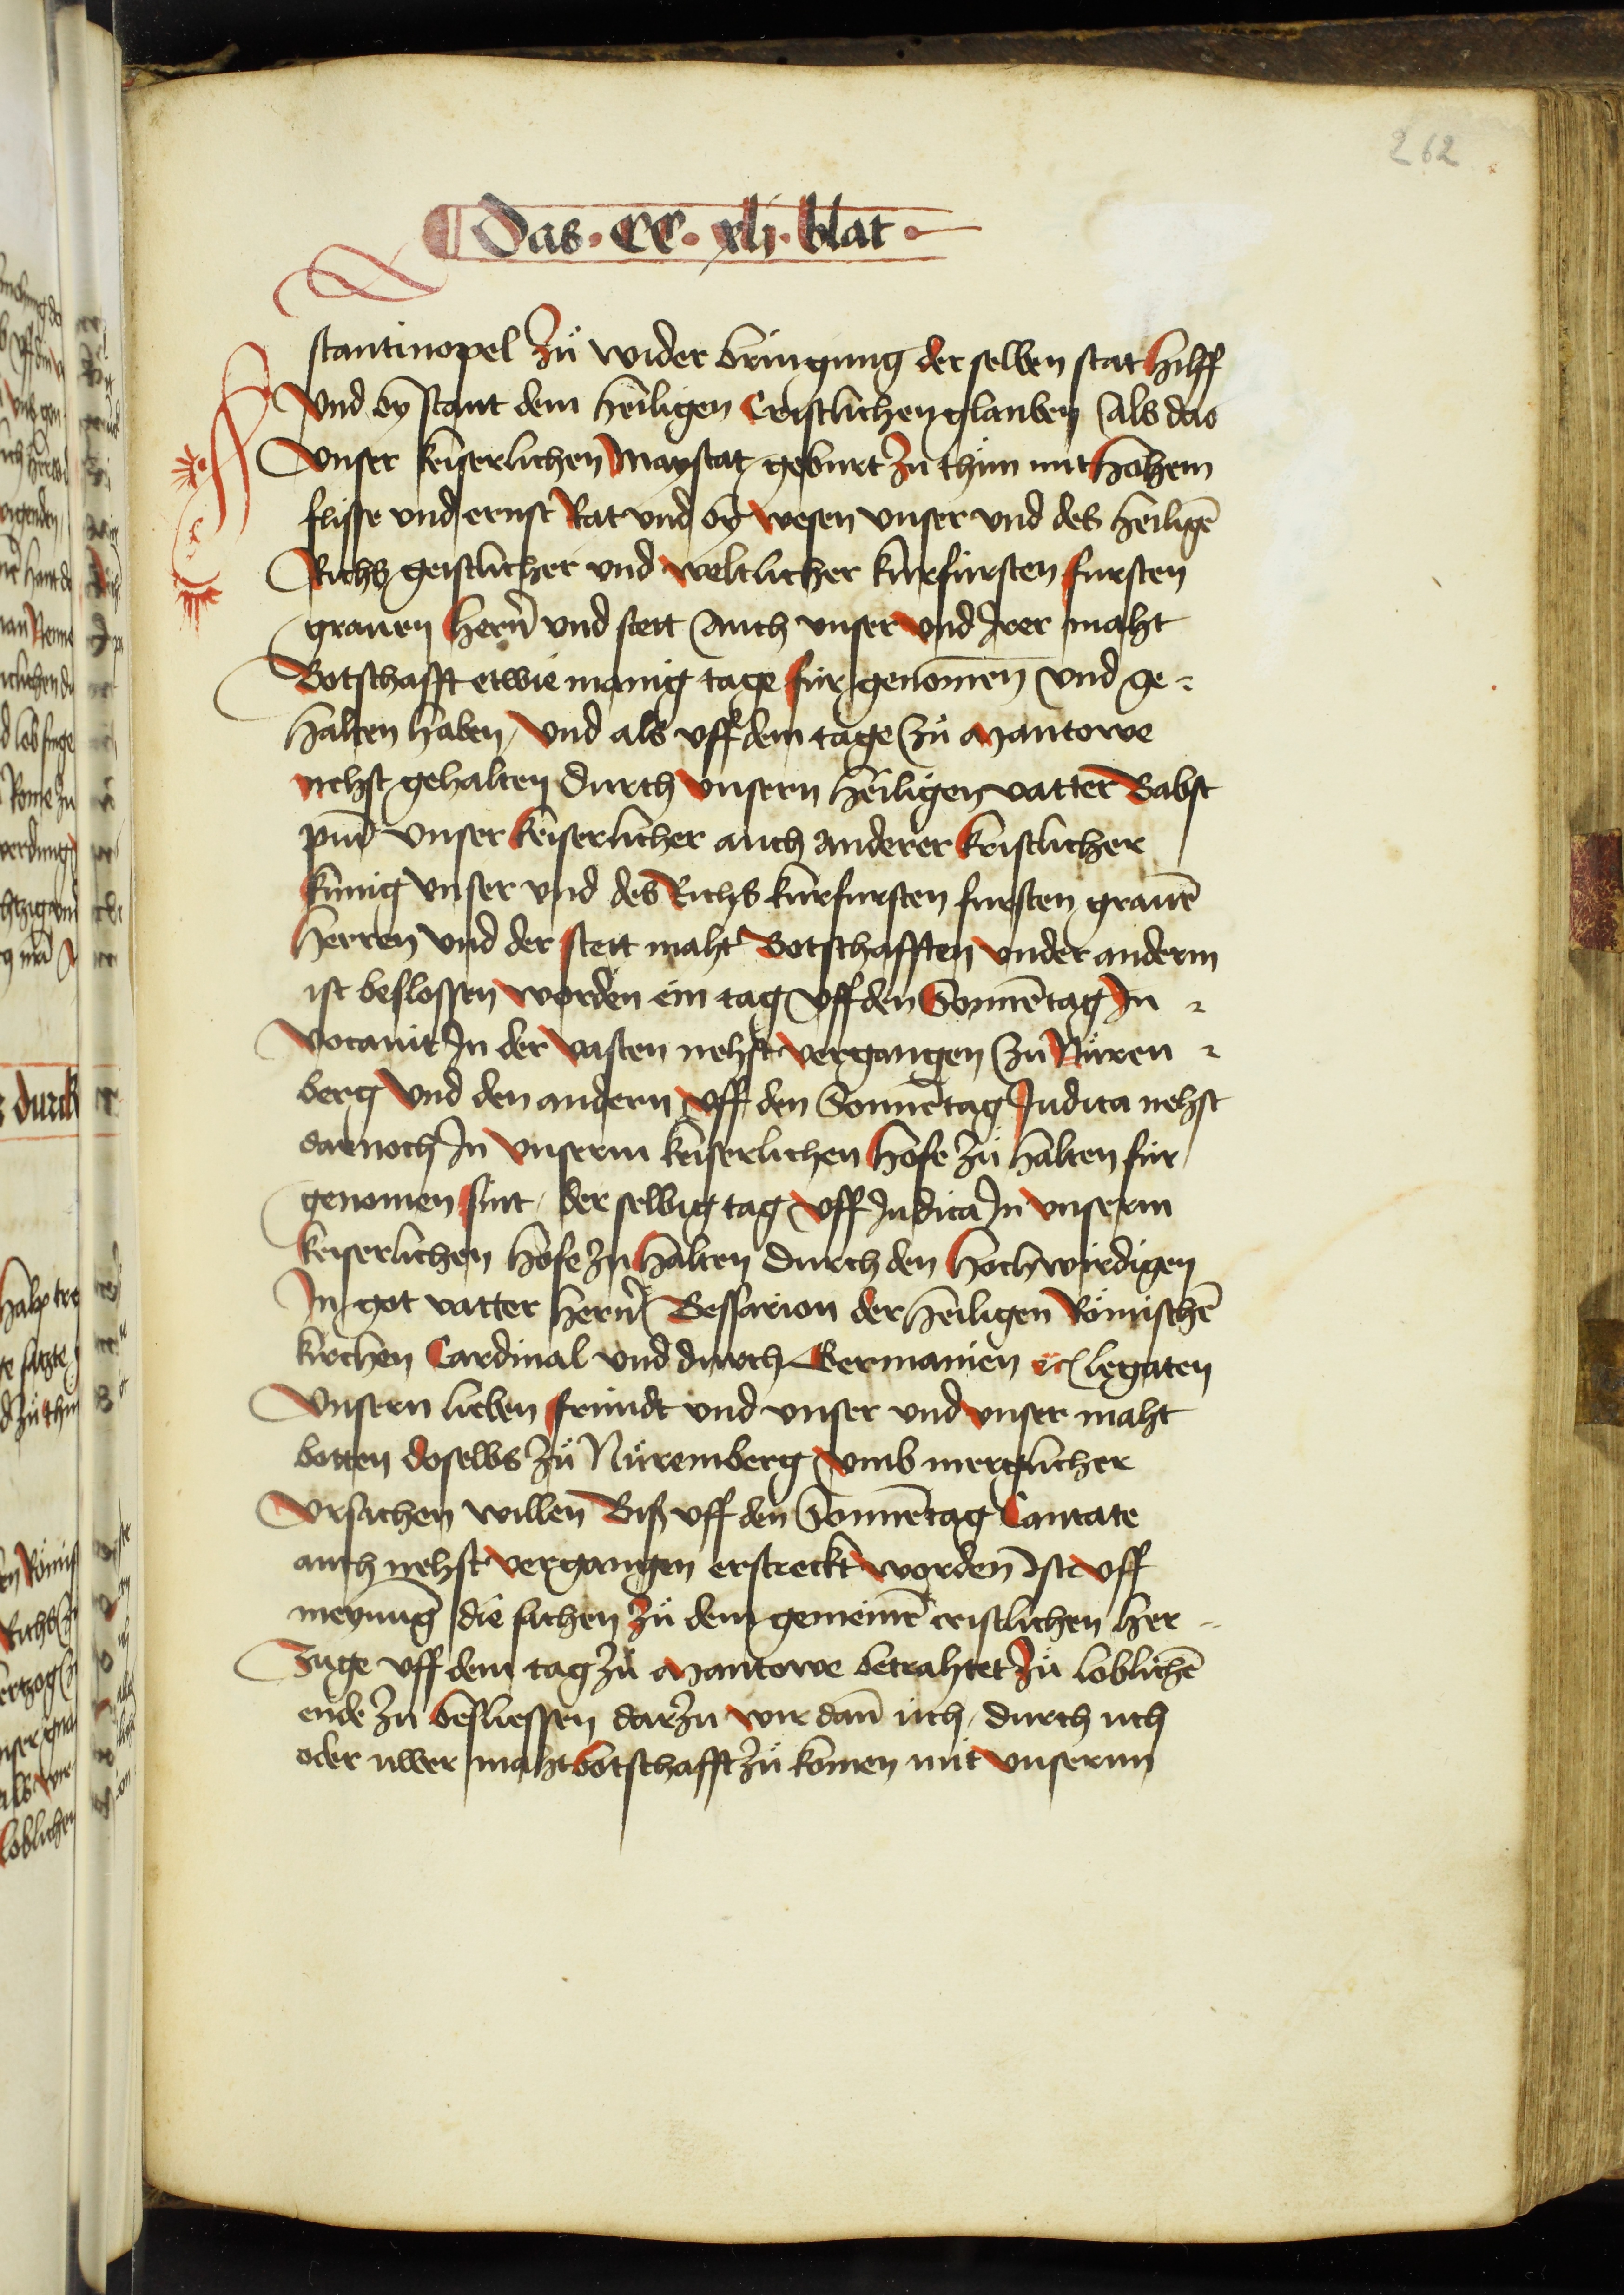 262
Das · CC · xlj · blat ·
stantinopel zů wider bringung der selben stat hilff
vnd bÿ stant dem heiligen Cristlichen glauben Als das
vnser keiserlichen Maystat geburt zu thün mit hohem
flisse vnd ernst Rat vnd bÿ wesen vnser vnd des heiligē
Richs geistlicher vnd weltlicher kurfürsten fursten
grauen Hern̄ vnd stett Auch vnser vnd Irer maht
Botschafft etwie manig tage für genom̄en vnd ge-
halten haben / vnd als vff dem tage zů Mantowe
nehst gehalten durch vnsern heiligen vatter Babst
pium vnser keiserlicher auch anderer kristlicher
künig vnser vnd des Richs kurfursten fursten grauē
Herren vnd der stett maht Botschafften vnder anderm
ist beslossen worden ein tag vff den Sonnētag In-
vocauit In der vasten nehst vergangen zu Nüren-
berg vnd den andern vff den Sonnētag Judica nehst
darnoch In vnserm keiserlichen Hofe zů halten für
genomen sint / der selbig tag vff Judica In vnserm
keiserlichen hofe zu Halten durch den Hochwirdigen
In got vatter hern̄ Bessarion der heiligen Römischē
kirchen Cardinal vnd durch Germanien ꝛc legaten
Vnsern lieben fründt vnd vnser vnd vnser maht
botten doselbs zů Nüremberg vmb mergklicher
vrsachen willen Biß vff den Sonnētag Cantate
auch nehst vergangen erstreckt worden Ist vff
meynung die sachen zů dem gemeinē cristlichen her-
zuge vff dem tag zů Mantowe betrahtet zů loblichē
ende zu besliessen darzu wir dan̄ üch / durch uch
oder uwer maht botschafft zů komen mit vnserm